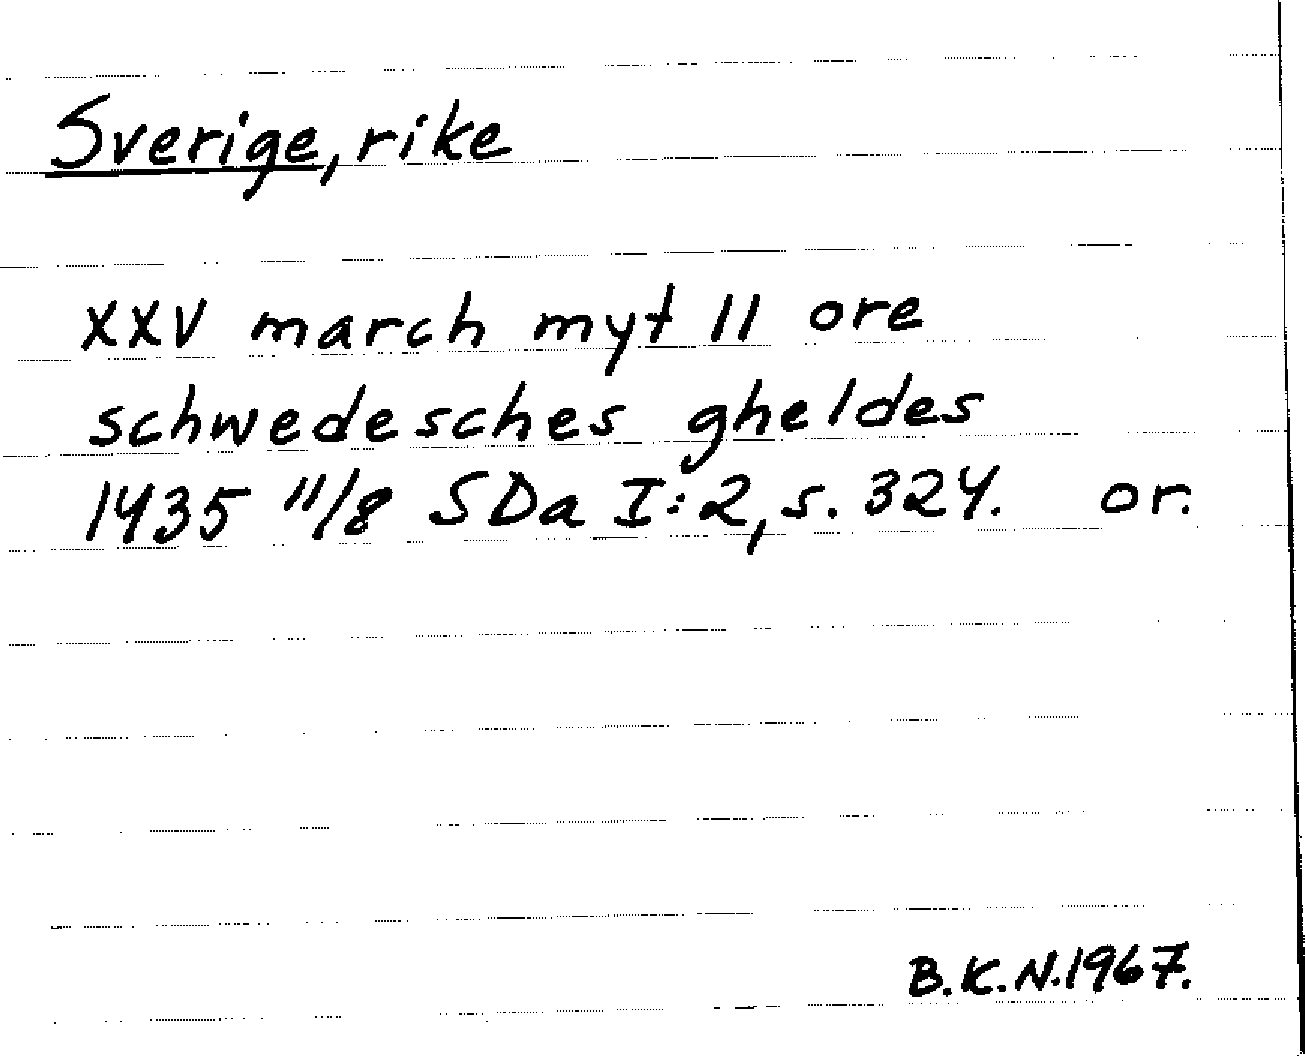 Sverige, rike
XXV march myt II ore
schwedesches gheldes
1435 11/8 SDa I:2, s. 324. or.
B.K.N.1967.